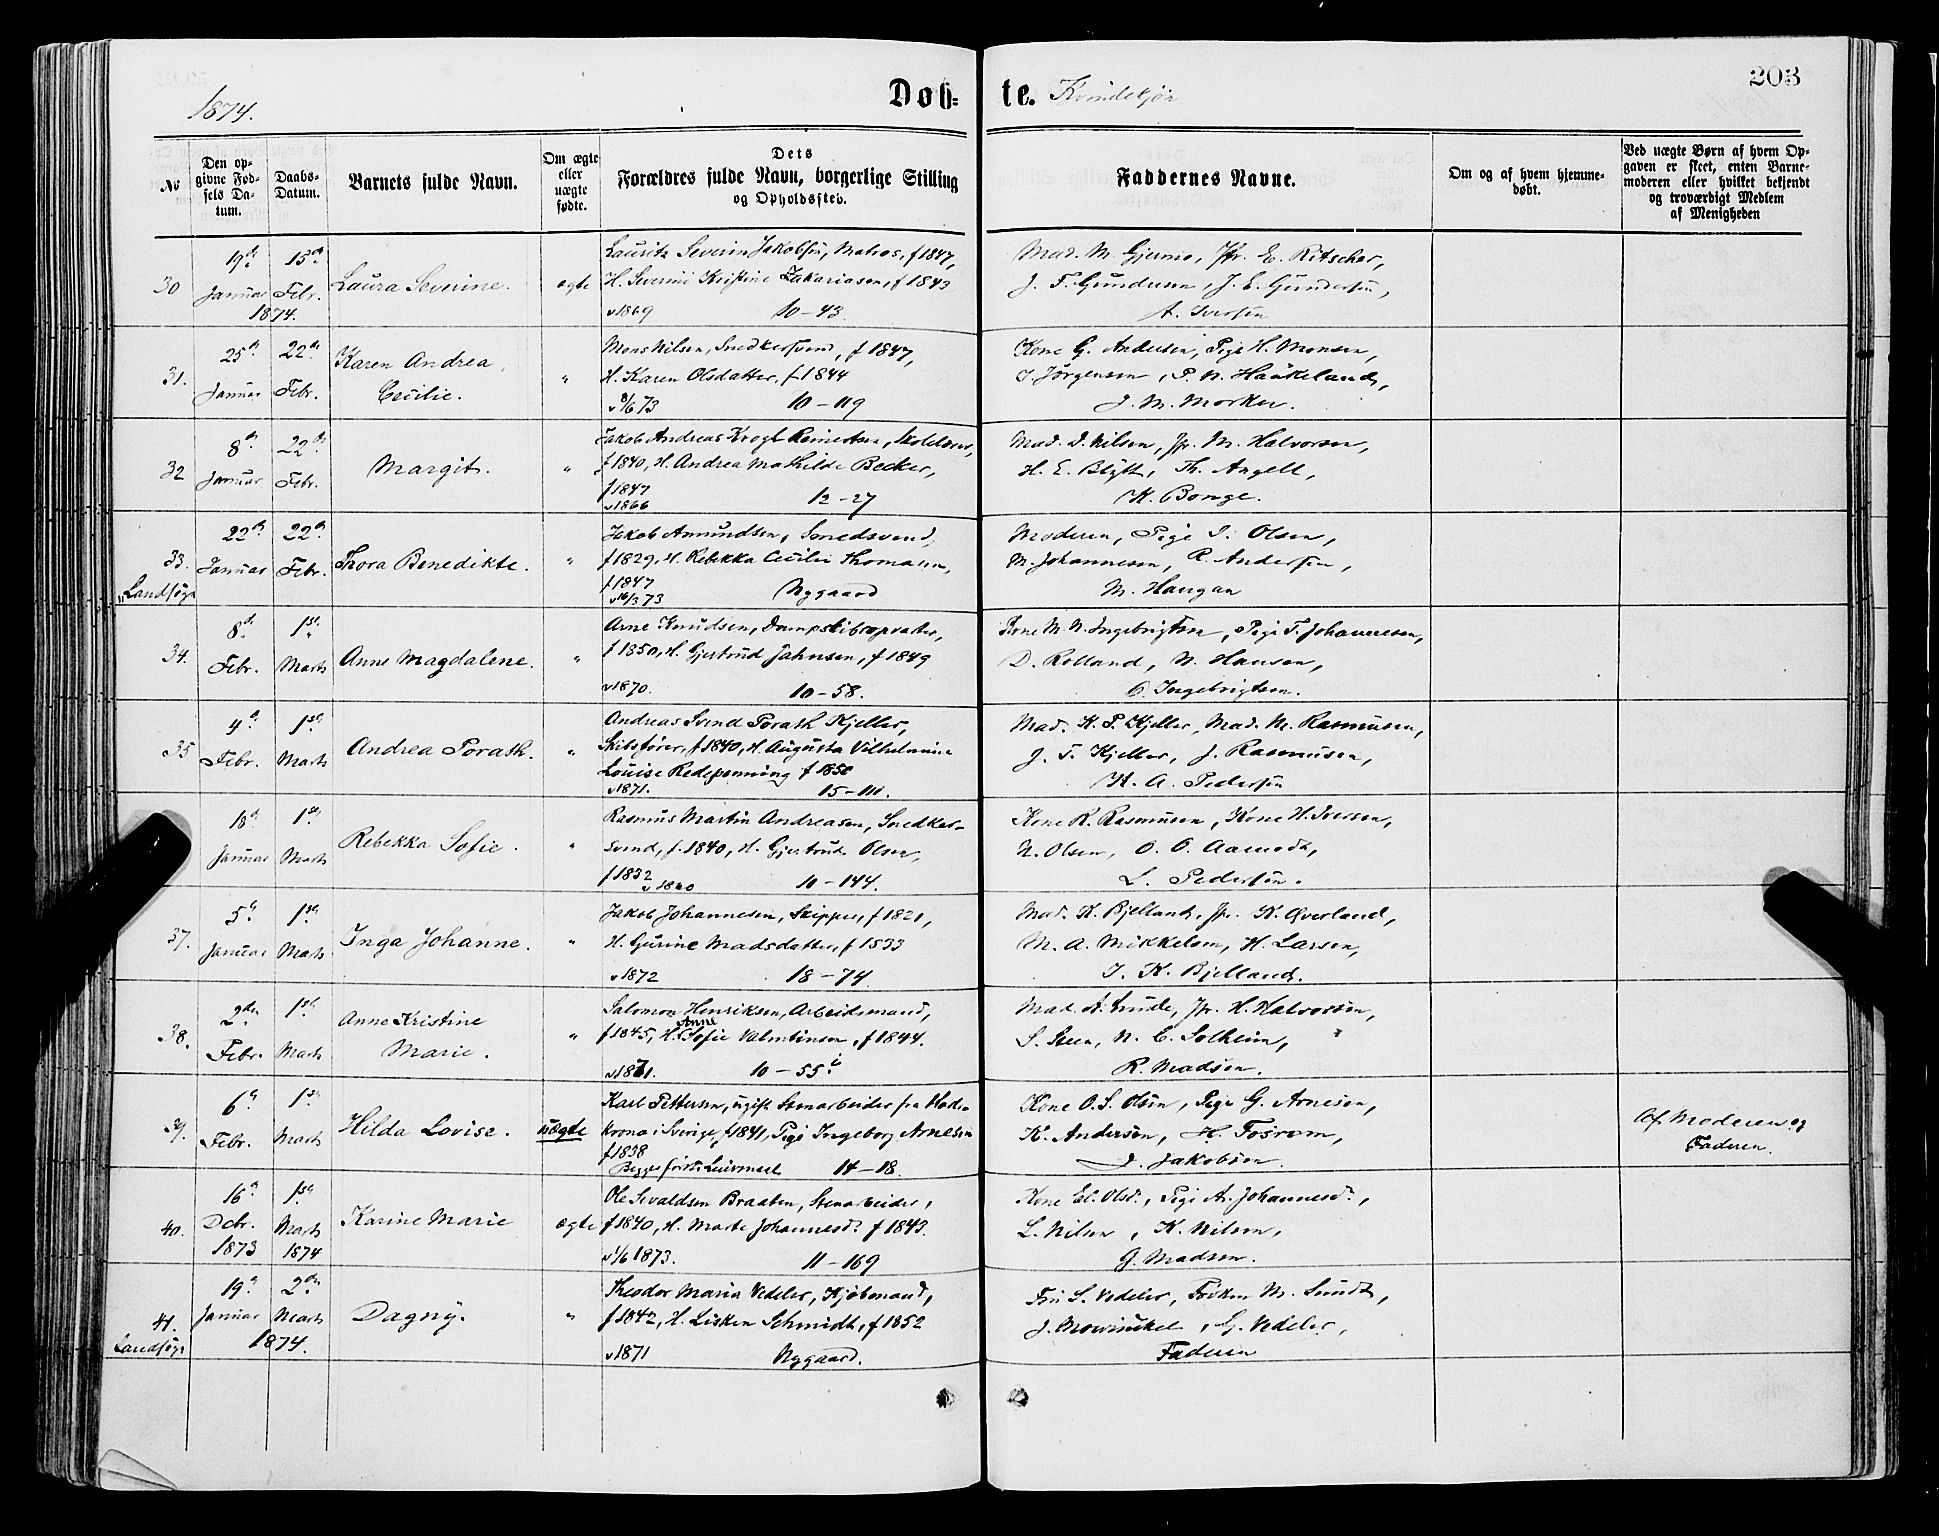 1874.
Døb-
te. Kvindekjøn
203
No
Den op-
givne Fød-
sels Da-
tum.
Daabs-
Datum.
Barnets fulde Navn.
Om ægte
eller
uægte
fødte.
Dets
Forældres fulde Navn, borgerlige Stilling
og Opholdssted.
Faddernes Navne.
Om og af hvem hjemme-
døbt.
Ved uægte Børn af hvem Op-
gaven er skeet, enten Barne-
moderen eller hvilket bekjendt
og troværdigt Medlem
af Menigheden
30
19de Januar
15de Febr.
1874.
Laura Severine.
ægte
Lauritz Severin Jakobsen, Matros, f 1847,
H. Severine Kristine Zakariasen, f 1843
v 1869 10-43.
Mad. M. Gjermo, Jfr. E. Ritscher,
J. F. Gundersen, J. E. Gundersen,
A. Iversen
31.
25de Januar
22de Febr.
Karen Andrea
Cecilie.
"
Mons Nilsen, Snedkersvend, f 1847,
H. Karen Olsdatter, f 1844
v 8/6 73 10-119
Kone G. Andersen, Pige H. Monsen,
I. Jørgensen, P. N. Haukeland,
J. M. Morken.
32
8de Januar
22de Febr.
Margit.
"
Jakob Andreas Krogh Reinertsen, Skolelærer,
f 1840, H. Andrea Mathilde Becker,
f 1847
v 1866 12-27
Mad. D. Nilsen, Jfr. M. Halvorsen,
H. E. Blytt, Th. Angell,
K. Bonge.
33.
Landsogn
22de Januar
22de Febr.
Thora Benedikte.
"
Jakob Amundsen, Smedsvend,
f 1829, H. Rebekka Cecilie Thomasen,
f 1847
v 16/3 73 Nygaard
Moderen, Pige I. Olsen,
M. Johannesen, R. Andersen,
M. Haugan
34.
8de Febr.
1ste Marts
Anne Magdalene.
"
Arne Knudsen, Dampskibsopvarter,
f 1850, H. Gjertrud Jahnsen, f 1849
v 1870. 10-58.
Kone M. N. Ingebrigtsen, Pige T. Johannesen,
D. Rolland, N. Hansen,
C. Ingebrigtsen.
35
4de Febr.
1ste Marts
Andrea Porath.
"
Andreas Svend Porath Kjeller,
Skibsfører, f 1840, H. Augusta Vilhelmine
Louise Redepenning f 1850
v 1871. 15-111.
Mad. K. P. Kjeller, Mad. M. Rasmusen,
J. T. Kjeller, J. Rasmusen,
H. A. Pedersen
18de Januar
1ste Marts
Rebekka Sofie.
"
Rasmus Martin Andreasen, Snedker-
svend, f. 1840, H. Gjertrud Olsen,
f 1832
v 1860 10-144.
Kone R. Rasmusen, Kone H. Iversen,
N. Olsen, O. O. Aamodt,
L. Pedersen.
37.
5te Januar
1ste Marts
Inga Johanne.
"
Jakob Johannesen, Skipper, f 1821,
H. Gurine Madsdatter, f 1833
v 1872 18-74.
Mad. K. Bjelland, Jfr. K. Øverland,
M. A. Mikkelsen, H. Larsen,
I. K. Bjelland.
38.
2den Febr.
1ste Marts
Anne Kristine
Marie.
"
Salomon Henriksen, Arbeidsmand,
f 1845, H. Anne Sofie Valentinsen, f 1844.
v 1871. 10-55
Mad. A. Gude, Jfr. H. Halvorsen,
S. Steen, N. C. Solheim,
R. Madsen.
39.
6te Febr.
1ste Marts
Hilda Lovise.
uægte
Karl Pettersen, ugift Stenarbeider fra
krona i Sverige, f 1841, Pige Ingeborg Arnesen
f 1838
Begges første Leiermaal 14-18.
Kone O. S. Olsen, Pige G. Arnesen,
K. Andersen, H. Fosrom,
J. Jakobsen.
Af Moderen og
Faderen.
40.
16de Decbr. 1873
1ste Marts 1874
Karine Marie
ægte
Ole Sevaldsen Braaten, Stenarbeider,
f 1840, H. Marte Johannesdt. f 1843.
v 1/6 1873. 11-169
Kone El. Olsdr., Pige A. Johannesdr.,
L. Nilsen, K. Nilsen,
G. Madsen.
41.
Landsogn
19de Januar
2den Marts
1874.
Dagny.
"
Theodor Maria Vedeler, Kjøbmand,
f 1842, H. Lisken Schmidt, f 1852
v 1871 Nygaard.
Fru S. Vedeler, Frøken M. Sundt,
J. Mowinckel, G. Vedeler,
Faderen